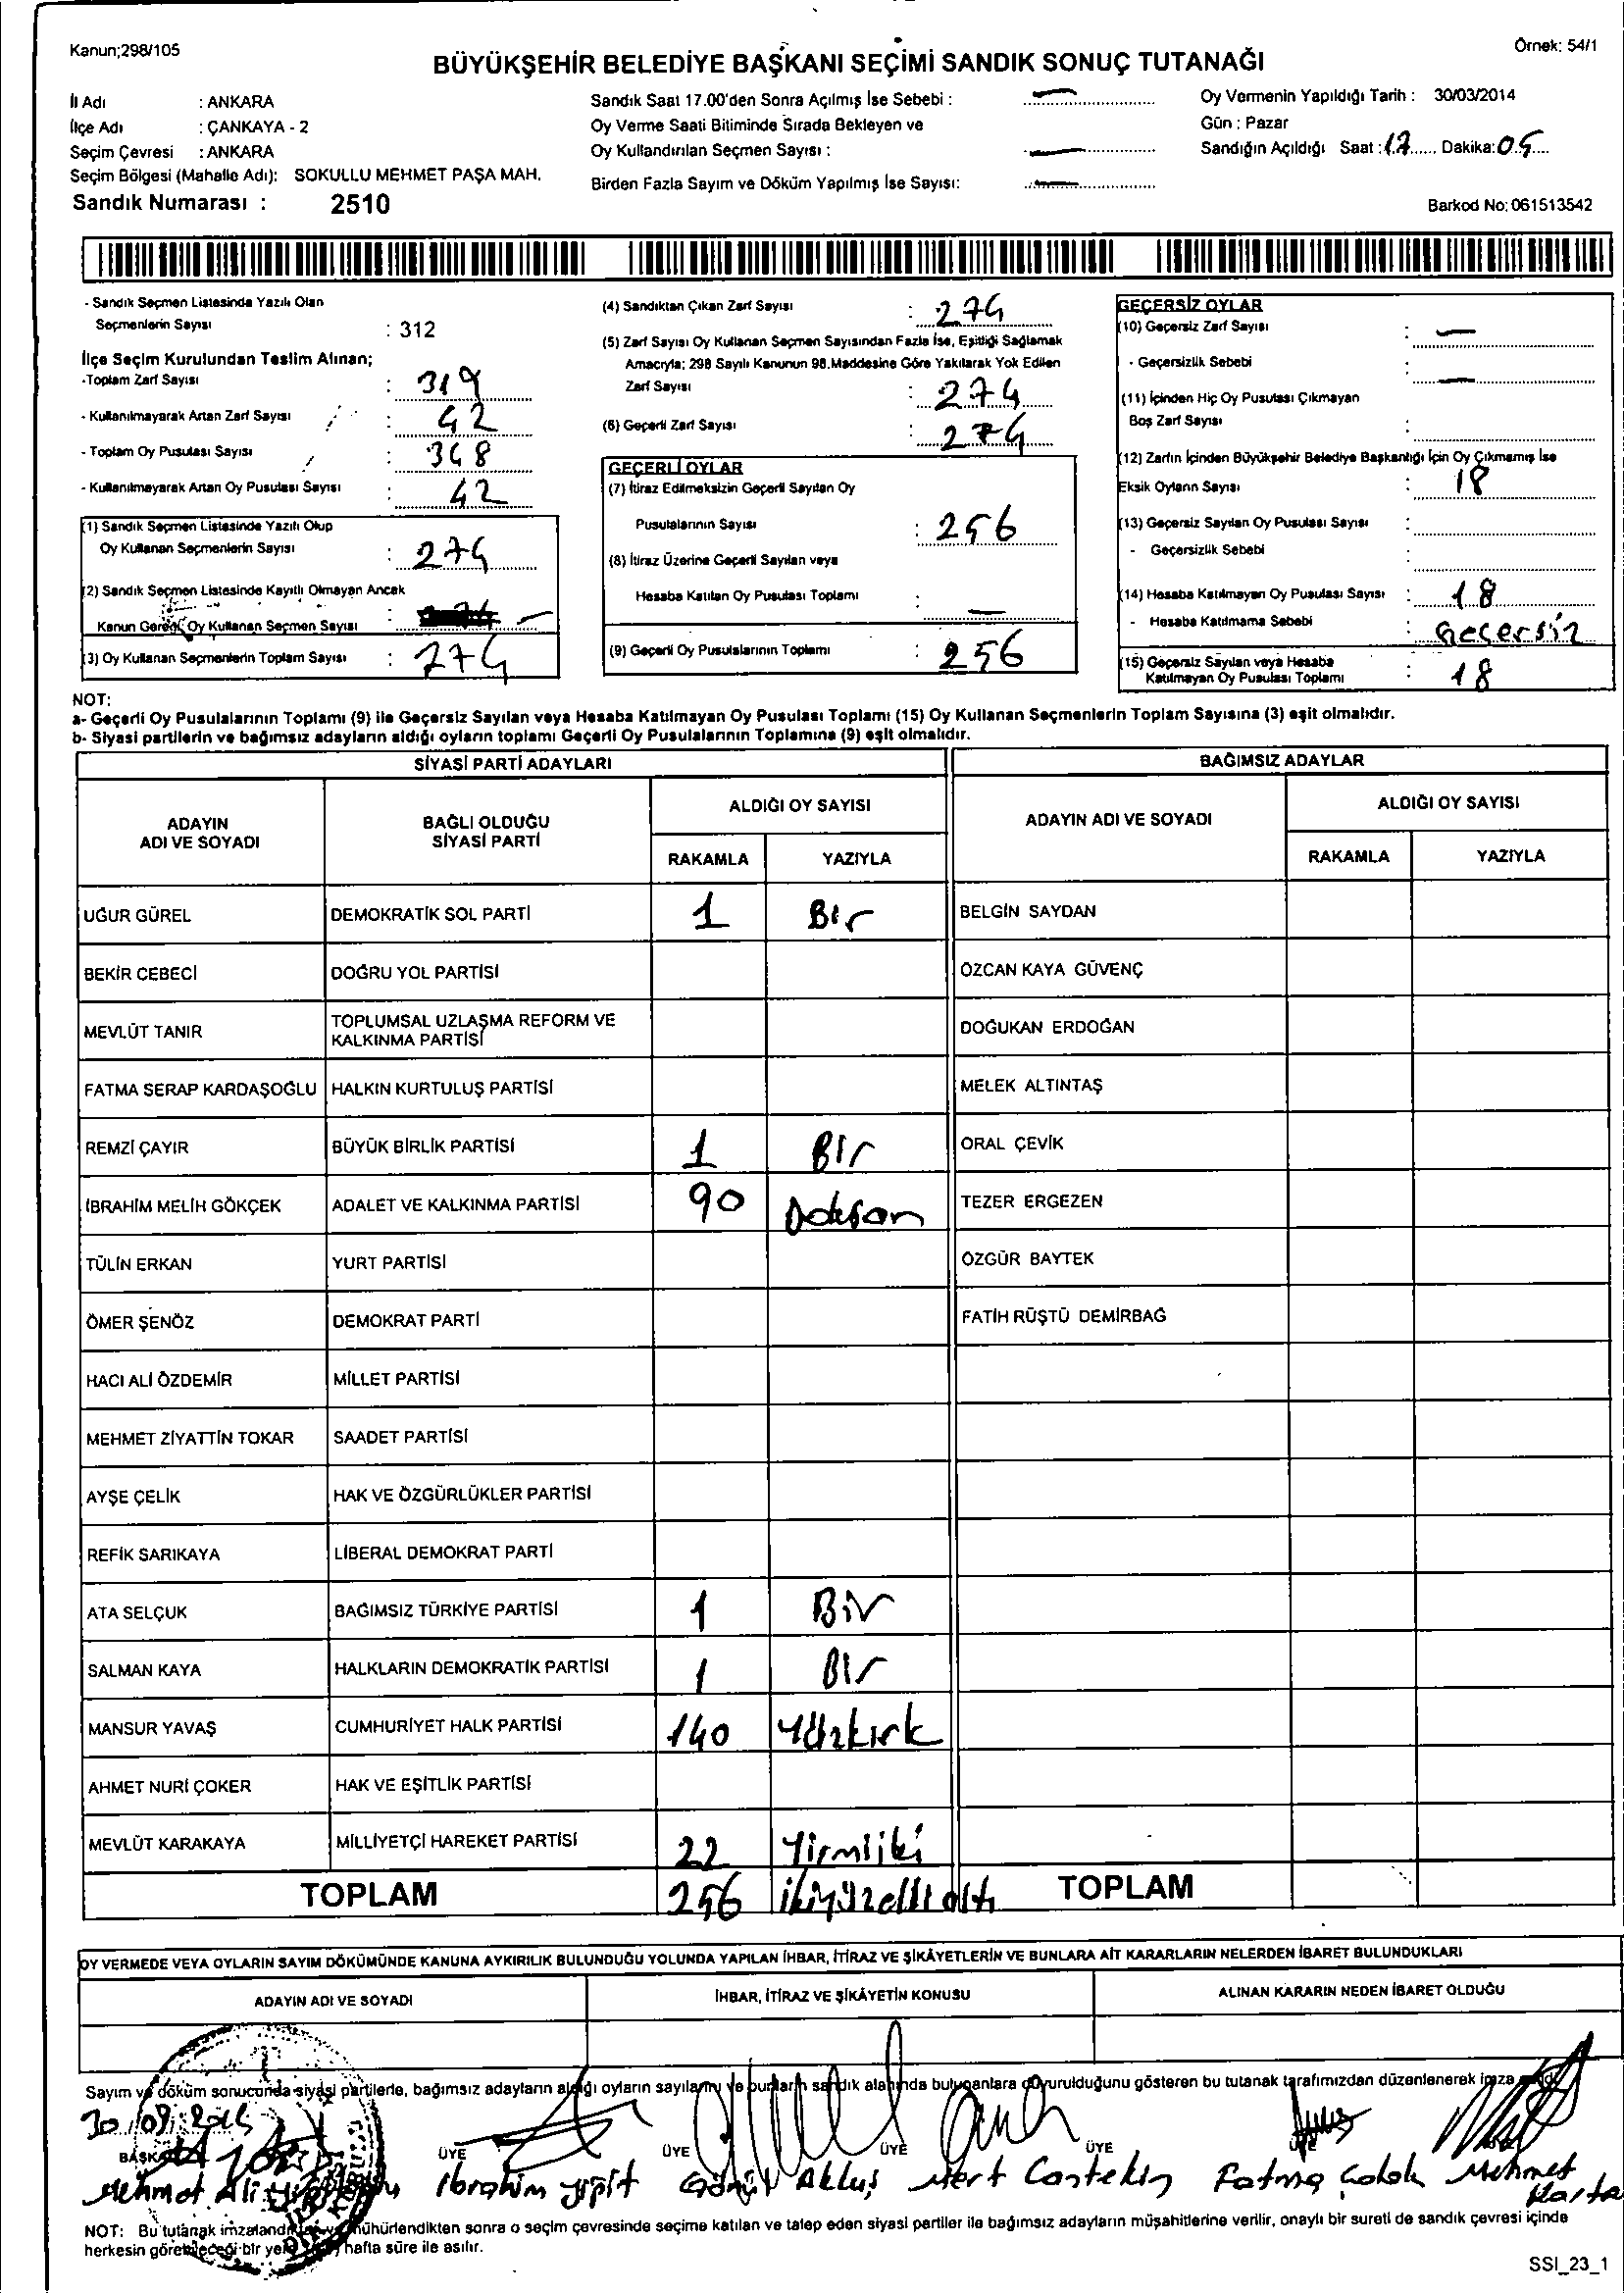 Kanun;298/105
Örnek: 54/1
BÜYÜKŞEHİR BELEDİYE BAŞKANI SEÇİMİ SANDIK SONUÇ TUTANAĞI
İl Adı : ANKARA
İlçe Adı : ÇANKAYA - 2
Seçim Çevresi : ANKARA
Seçim Bölgesi (Mahalle Adı): SOKULLU MEHMET PAŞA MAH.
Sandık Numarası : 2510
Sandık Saat 17.00'den Sonra Açılmış İse Sebebi :
Oy Verme Saati Bitiminde Sırada Bekleyen ve
Oy Kullandırılan Seçmen Sayısı :
Birden Fazla Sayım ve Döküm Yapılmış İse Sayısı:
Oy Vermenin Yapıldığı Tarih : 30/03/2014
Gün : Pazar
Sandığın Açıldığı Saat : 17 Dakika: 05
Barkod No: 061513542
- Sandık Seçmen Listesinde Yazılı Olan
Seçmenlerin Sayısı : 312
İlçe Seçim Kurulundan Teslim Alınan;
-Toplam Zarf Sayısı : 319
- Kullanılmayarak Artan Zarf Sayısı : 42
- Toplam Oy Pusulası Sayısı : 348
- Kullanılmayarak Artan Oy Pusulası Sayısı : 42
(1) Sandık Seçmen Listesinde Yazılı Olup
Oy Kullanan Seçmenlerin Sayısı : 274
(2) Sandık Seçmen Listesinde Kayıtlı Olmayan Ancak
Kanun Gereği Oy Kullanan Seçmen Sayısı : -
(3) Oy Kullanan Seçmenlerin Toplam Sayısı : 274
(4) Sandıktan Çıkan Zarf Sayısı : 274
(5) Zarf Sayısı Oy Kullanan Seçmen Sayısından Fazla İse, Eşitliği Sağlamak
Amacıyla; 298 Sayılı Kanunun 98.Maddesine Göre Yakılarak Yok Edilen
Zarf Sayısı : 274
(6) Geçerli Zarf Sayısı : 274
GEÇERLİ OYLAR
(7) İtiraz Edilmeksizin Geçerli Sayılan Oy
Pusulalarının Sayısı : 256
(8) İtiraz Üzerine Geçerli Sayılan veya
Hesaba Katılan Oy Pusulası Toplamı : -
(9) Geçerli Oy Pusulalarının Toplamı : 256
GEÇERSİZ OYLAR
(10) Geçersiz Zarf Sayısı : -
- Geçersizlik Sebebi : -
(11) İçinden Hiç Oy Pusulası Çıkmayan
Boş Zarf Sayısı :
(12) Zarfın İçinden Büyükşehir Belediye Başkanlığı İçin Oy Çıkmamış İse
Eksik Oyların Sayısı : 18
(13) Geçersiz Sayılan Oy Pusulası Sayısı :
- Geçersizlik Sebebi :
(14) Hesaba Katılmayan Oy Pusulası Sayısı : 18
- Hesaba Katılmama Sebebi : Geçersiz
(15) Geçersiz Sayılan veya Hesaba
Katılmayan Oy Pusulası Toplamı : 18
NOT:
a- Geçerli Oy Pusulalarının Toplamı (9) ile Geçersiz Sayılan veya Hesaba Katılmayan Oy Pusulası Toplamı (15) Oy Kullanan Seçmenlerin Toplam Sayısına (3) eşit olmalıdır.
b- Siyasi partilerin ve bağımsız adayların aldığı oyların toplamı Geçerli Oy Pusulalarının Toplamına (9) eşit olmalıdır.
SİYASİ PARTİ ADAYLARI
BAĞIMSIZ ADAYLAR
ADAYIN ADI VE SOYADI
BAĞLI OLDUĞU SİYASİ PARTİ
ALDIĞI OY SAYISI
RAKAMLA YAZIYLA
ADAYIN ADI VE SOYADI
ALDIĞI OY SAYISI
RAKAMLA YAZIYLA
UĞUR GÜREL DEMOKRATİK SOL PARTİ 1 Bir BELGİN SAYDAN
BEKİR CEBECİ DOĞRU YOL PARTİSİ ÖZCAN KAYA GÜVENÇ
MEVLÜT TANIR TOPLUMSAL UZLAŞMA REFORM VE KALKINMA PARTİSİ DOĞUKAN ERDOĞAN
FATMA SERAP KARDAŞOĞLU HALKIN KURTULUŞ PARTİSİ MELEK ALTINTAŞ
REMZİ ÇAYIR BÜYÜK BİRLİK PARTİSİ 1 BİR ORAL ÇEVİK
İBRAHİM MELİH GÖKÇEK ADALET VE KALKINMA PARTİSİ 90 Doksan TEZER ERGEZEN
TÜLİN ERKAN YURT PARTİSİ ÖZGÜR BAYTEK
ÖMER ŞENÖZ DEMOKRAT PARTİ FATİH RÜŞTÜ DEMİRBAĞ
HACI ALİ ÖZDEMİR MİLLET PARTİSİ
MEHMET ZİYATTİN TOKAR SAADET PARTİSİ
AYŞE ÇELİK HAK VE ÖZGÜRLÜKLER PARTİSİ
REFİK SARIKAYA LİBERAL DEMOKRAT PARTİ
ATA SELÇUK BAĞIMSIZ TÜRKİYE PARTİSİ 1 Bir
SALMAN KAYA HALKLARIN DEMOKRATİK PARTİSİ 1 Bir
MANSUR YAVAŞ CUMHURİYET HALK PARTİSİ 140 Yüzkırk
AHMET NURİ ÇOKER HAK VE EŞİTLİK PARTİSİ
MEVLÜT KARAKAYA MİLLİYETÇİ HAREKET PARTİSİ 22 Yirmiiki
TOPLAM 256 ikiyüzellialtı TOPLAM
OY VERMEDE VEYA OYLARIN SAYIM DÖKÜMÜNDE KANUNA AYKIRILIK BULUNDUĞU YOLUNDA YAPILAN İHBAR, İTİRAZ VE ŞİKÂYETLERİN VE BUNLARA AİT KARARLARIN NELERDEN İBARET BULUNDUKLARI
ADAYIN ADI VE SOYADI İHBAR, İTİRAZ VE ŞİKÂYETİN KONUSU ALINAN KARARIN NEDEN İBARET OLDUĞU
Sayım ve döküm sonucunda siyasi partilerle, bağımsız adayların aldığı oyların sayılarını ve bunların sandık alanında bulunanlara duyurulduğunu gösteren bu tutanak tarafımızdan düzenlenerek imza
BAŞKAN ÜYE ÜYE ÜYE ÜYE
Mehmet Ali İbrahim Yiğit Gönül Akkuş Mert Çastekin Fatma Çolak Mehmet Karta
NOT: Bu tutanak imzalandık ve mühürlendikten sonra o seçim çevresinde seçime katılan ve talep eden siyasi partiler ile bağımsız adayların müşahitlerine verilir, onaylı bir sureti de sandık çevresi içinde
herkesin görebileceği bir yere hafta süre ile asılır.
SSI_23_1